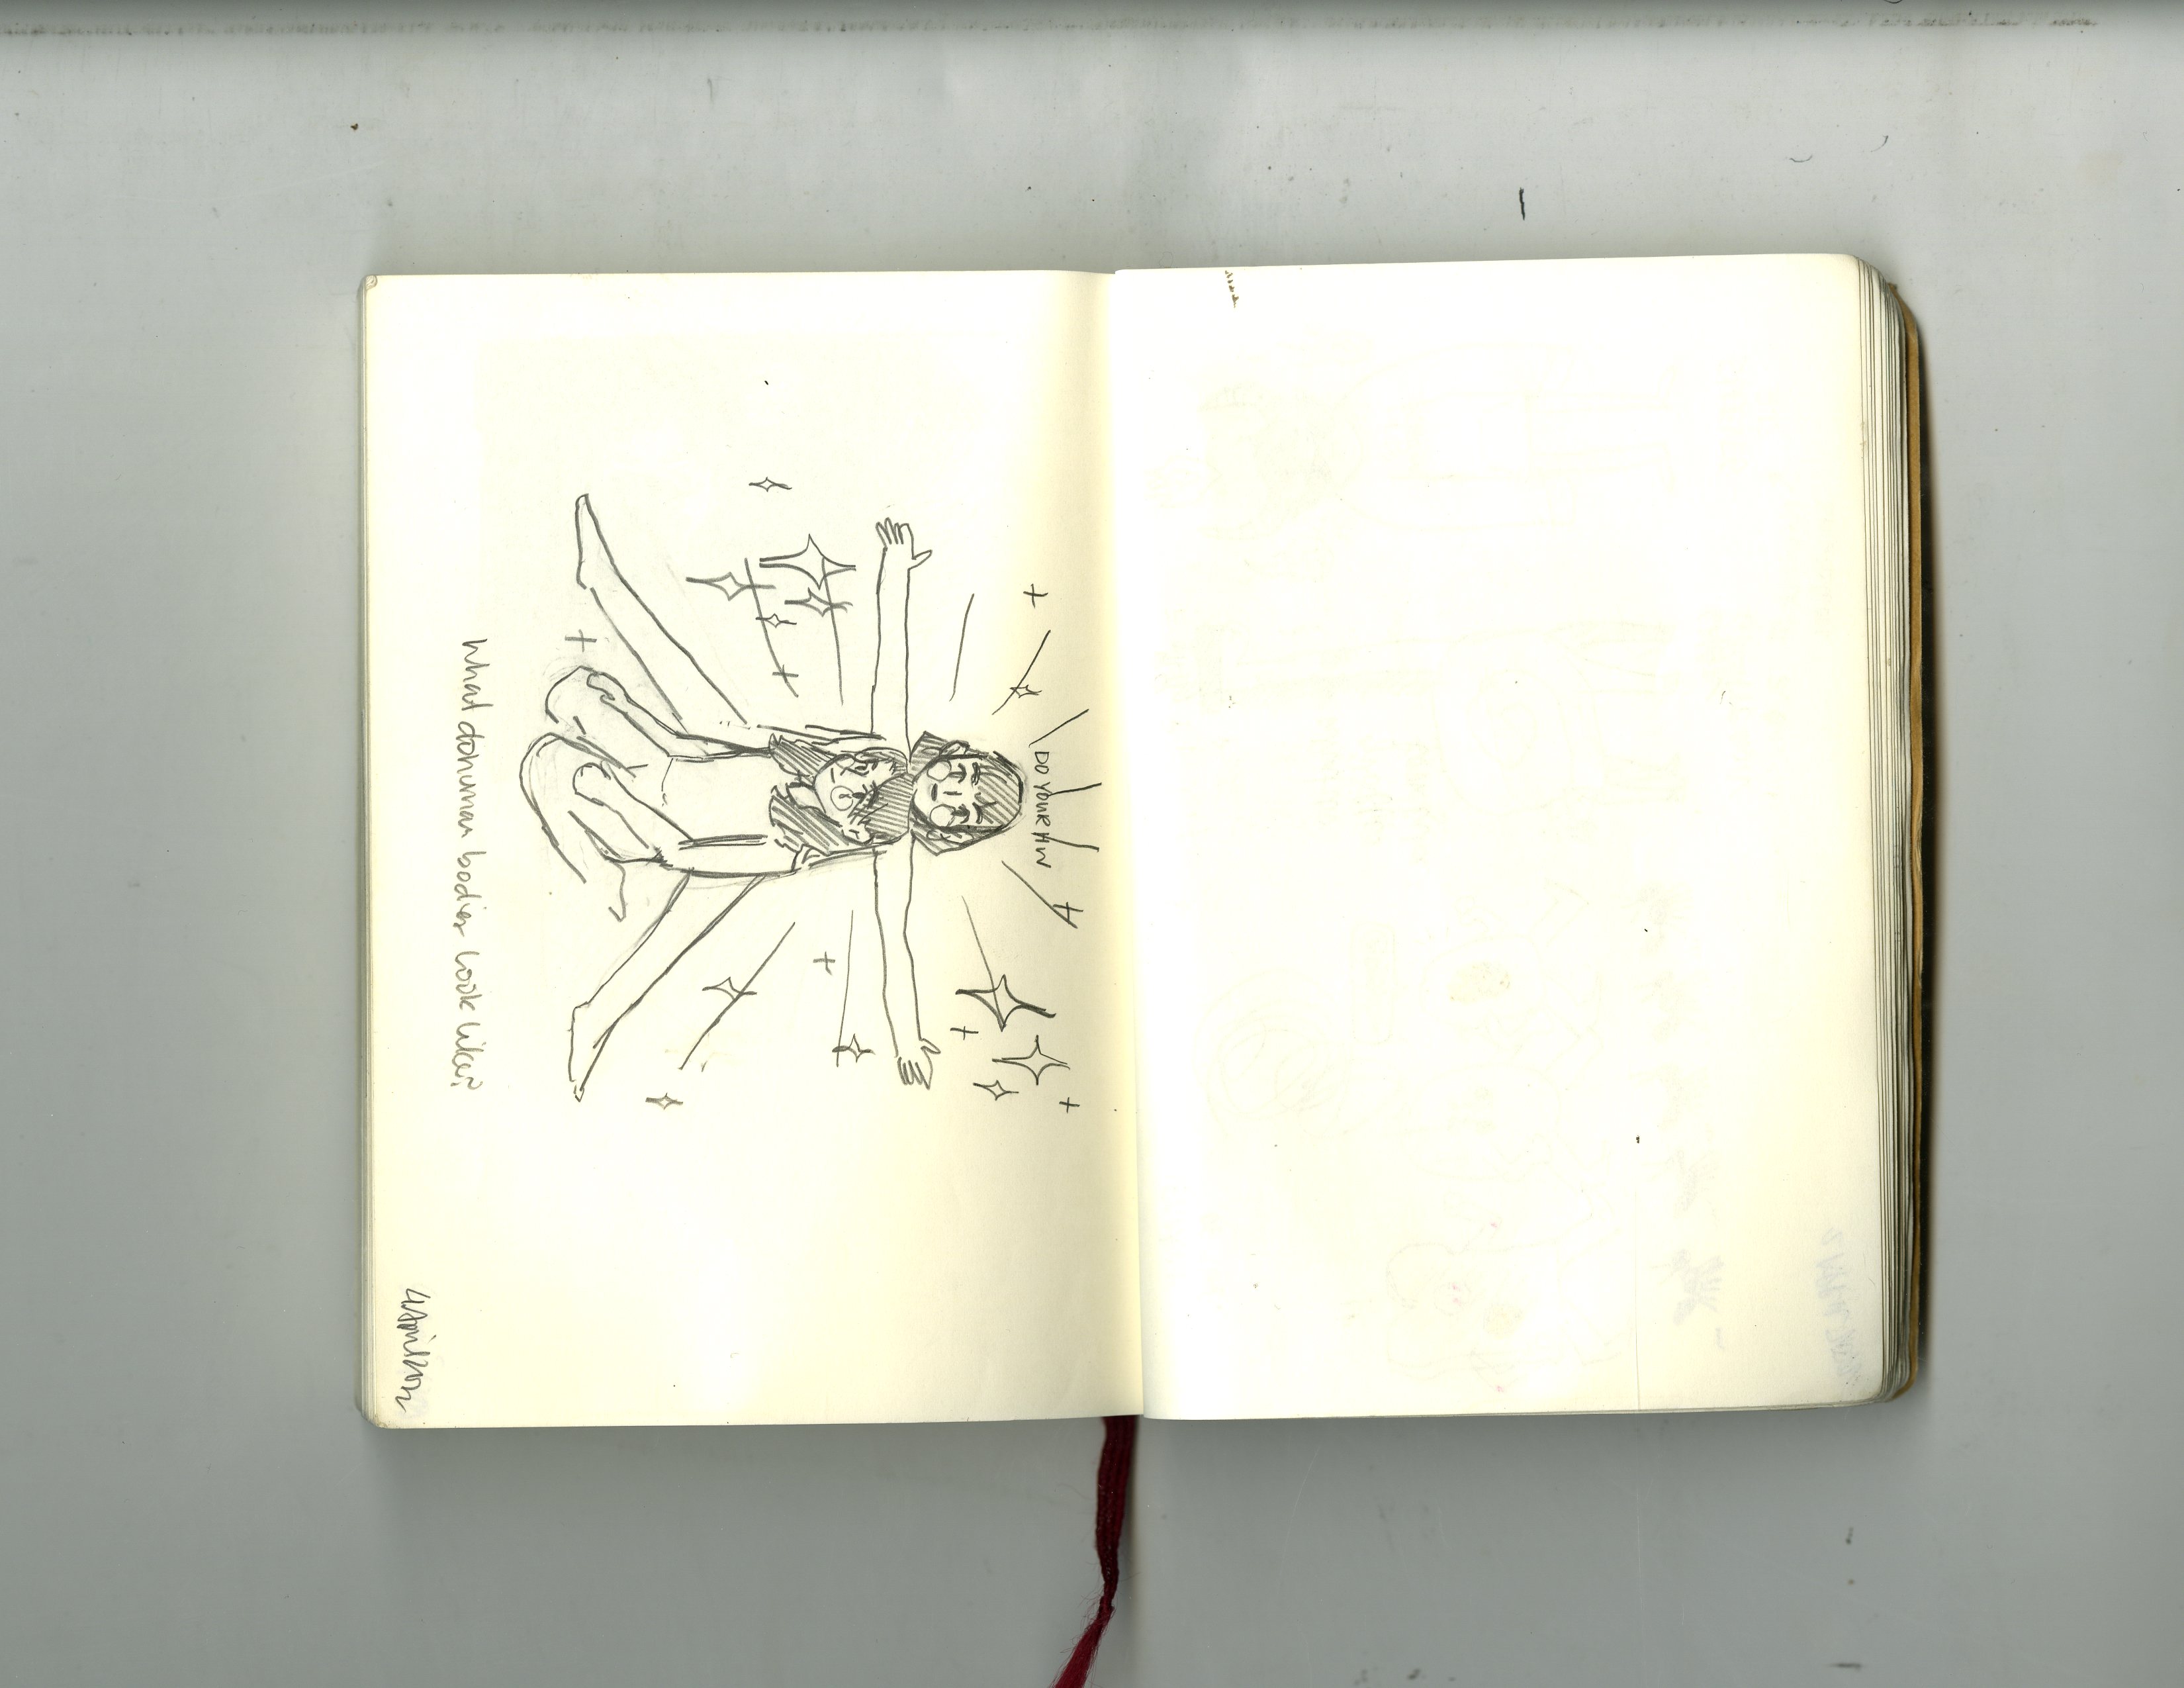 DO YOUR HW
What do human bodies look like?
4 April